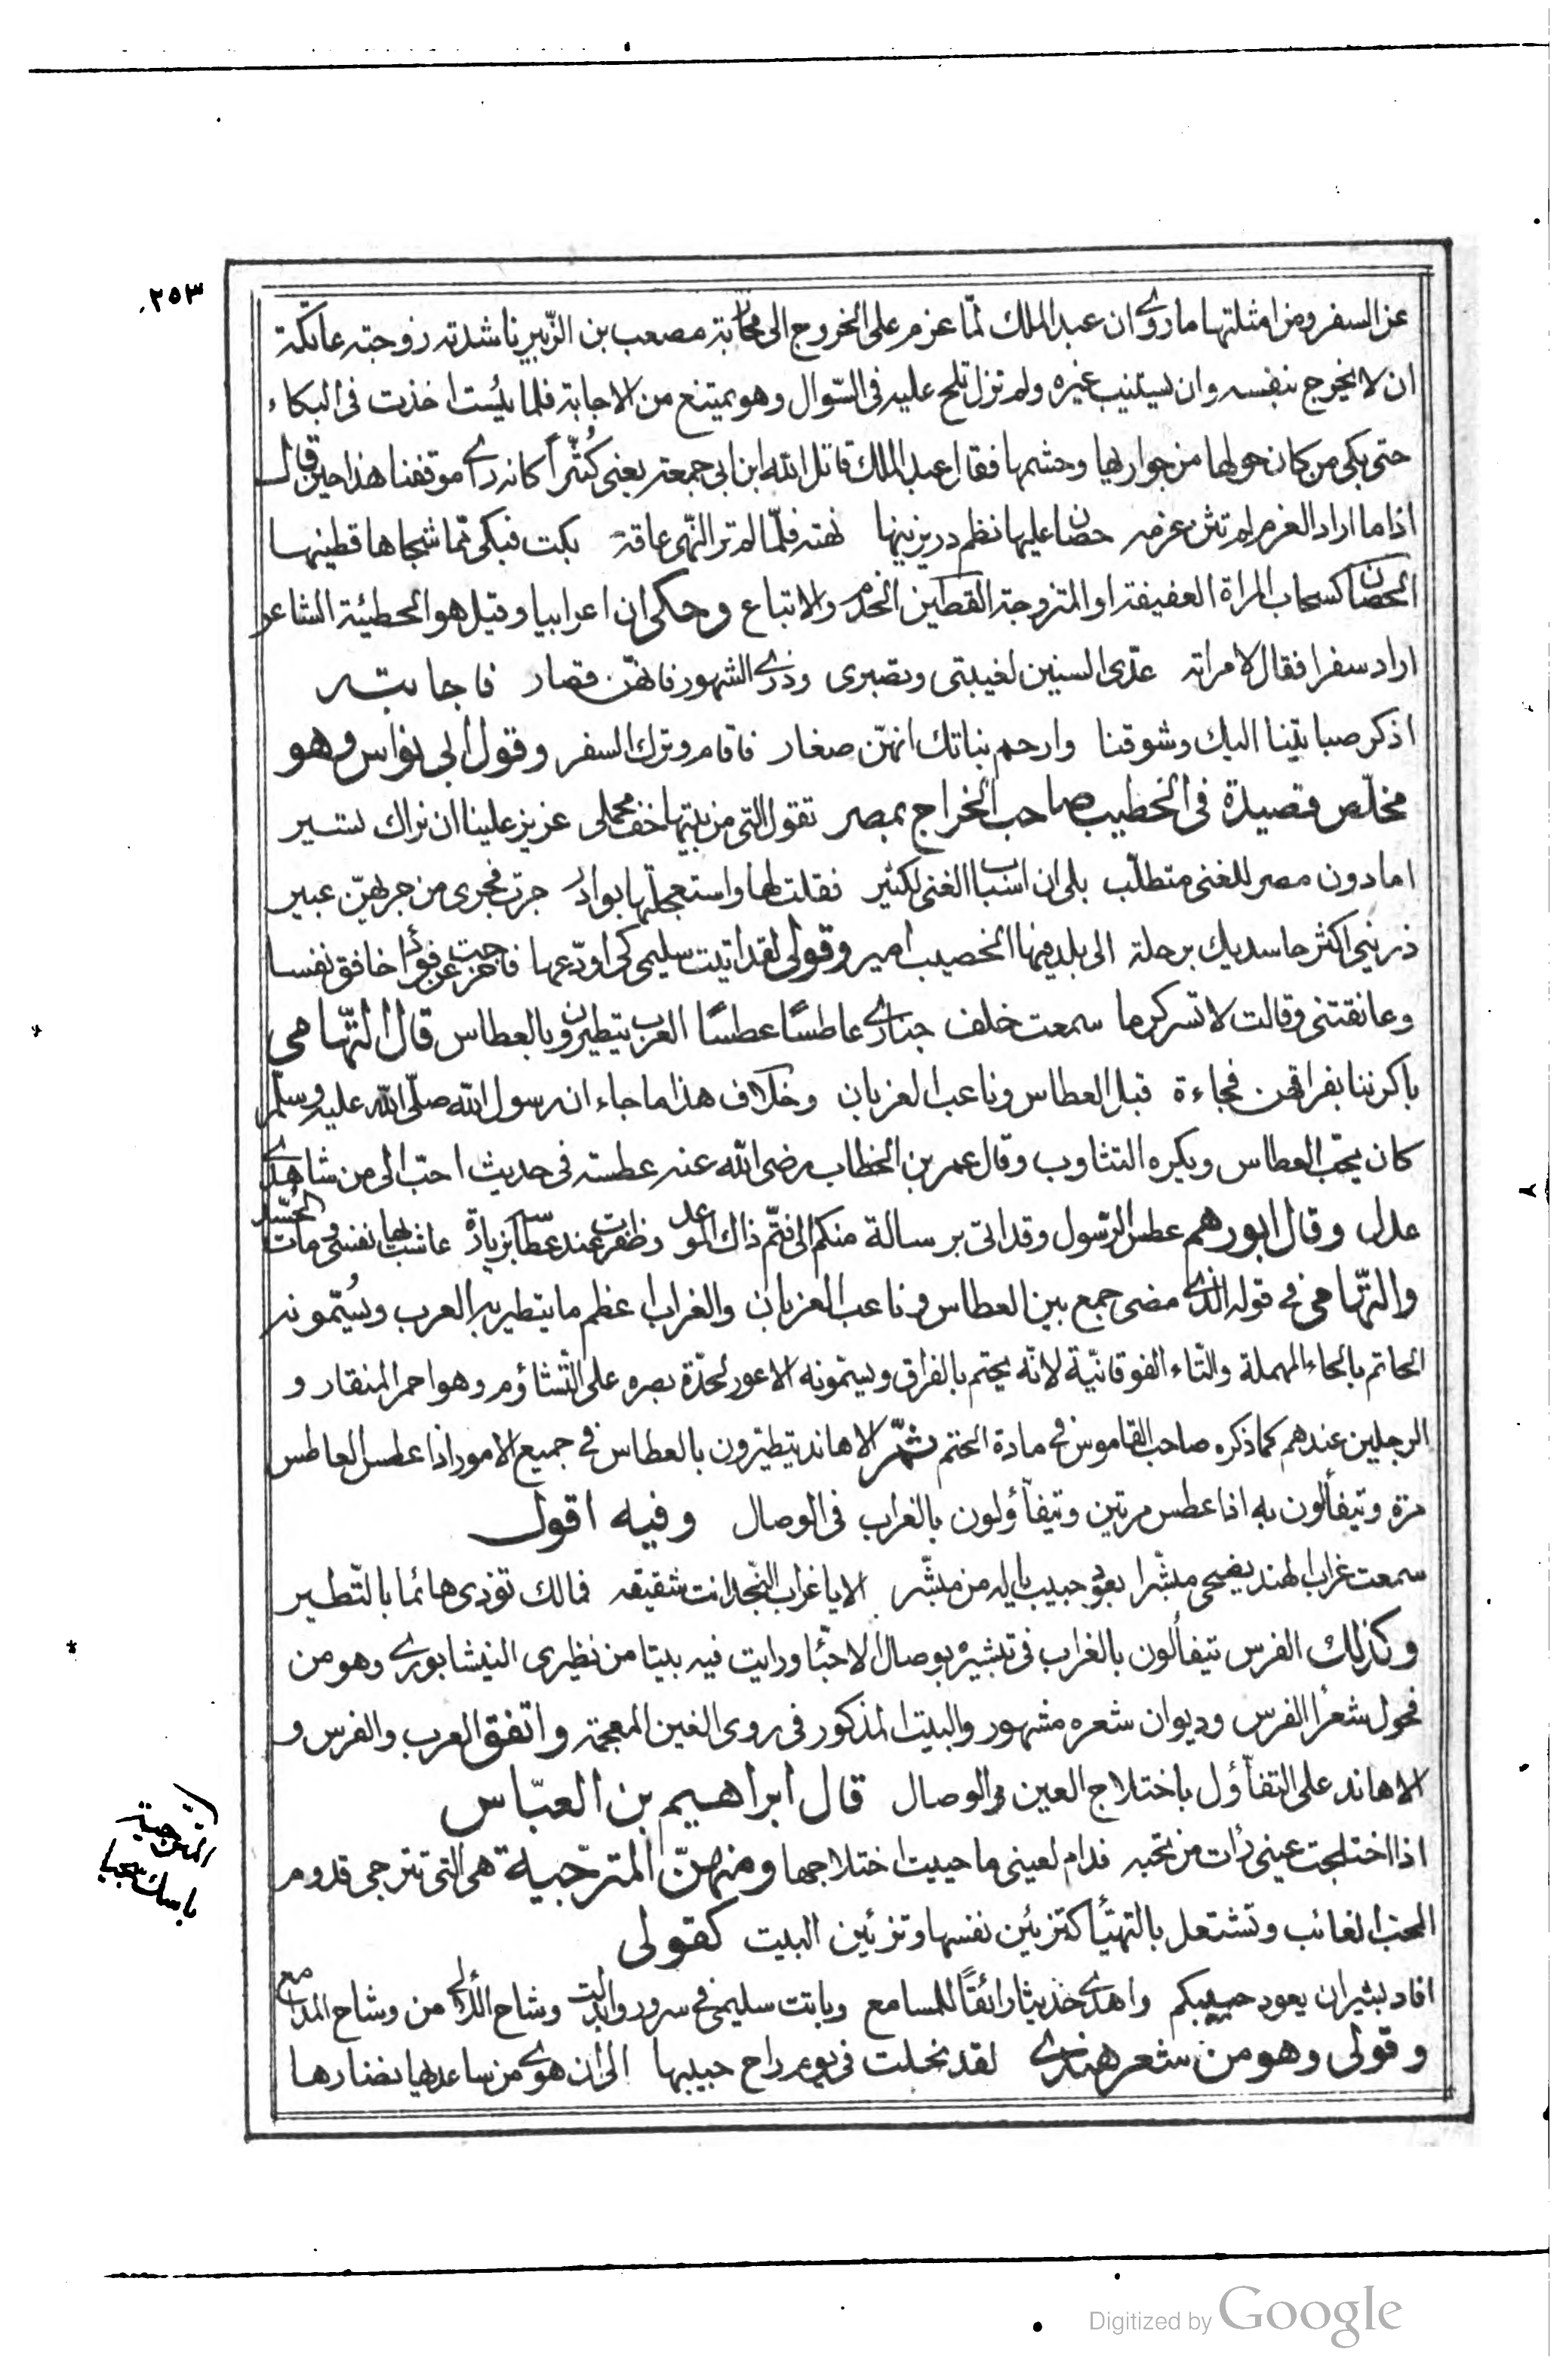 ٢٥٣
عن السفر ومن امثلتها ما روى ان عبد الملك لمّا عزم على الخروج الى محاربة مصعب بن الزّبير ناشدته زوجته عاتكة
ان لا يخرج بنفسه وان يستنيب غيره ولم تزل تلح عليه فى السّوال وهو يمتنع من الاجابة فلما يئست اخذت فى البكاء
حتى بكى من كان حولها من جواريها وحشمها فقال عبد الملك قاتل الله ابن ابى جمعة يعنى كُثَيّراً كانه راى موقفنا هذا حين قال
اذا ما اراد الغزو لم تثن عزمه حصان عليها نظم در يزينها نهته فلمّا لم تر النّهى عاقه بكت فبكى ممّا شجاها قطينها
الحصان كسحاب المراة العفيفة او المتزوجة القطين الخدم والاتباع وحكى ان اعرابيا وقيل هو الحطيئة الشاعر
اراد سفرا فقال لامراته عدّى السنين لغيبتى وتصبرى وذرى الشهور فانهنّ قصار فاجابته
اذكر صبابتنا اليك وشوقنا وارحم بناتك انهنّ صغار فاقام وترك السفر وقول ابى نواس وهو
مخلّص قصيدة فى الخطيب صاحب الخراج بمصر تقول التى من بيتها خف محملى عزيز علينا ان نراك تسير
اما دون مصر للغنى متطلّب بلى ان اسباب الغنى لكثير فقلت لها واستعجلتها بوادر جرت فجرى من جريهنّ عبير
ذرينى اكثر حاسديك برحلة الى بلد فيها الخصيب امير وقولى لقد اتيت سليمى كى اودّعها فاحرجت عن فؤاد خافق نفسا
وعانقتنى وقالت لا تسر كرما سمعت خلف جدارى عاطسًا عطسًا العرب يتطيرون بالعطاس قال التّهامى
باكرننا بفراقهن فجاءة قبل العطاس وناعب الغربان وخلاف هذا ما جاء ان رسول الله صلّى الله عليه وسلّم
كان يحب العطاس ويكره التثاوب وقال عمر بن الخطاب رضى الله عنه عطسة فى حديث احبّ الى من شاهدى
عدل وقال ابو رهم عطس الرّسول وقد اتى برسالة منكم الى فتمّ ذاك الموعد وظفرت عند عطاسه بزيادة عاشت لها نفسى ومات الحُسّد
والتّهامى فى قوله الذى مضى جمع بين العطاس وناعب الغربان والغراب اعظم ما يتطير به العرب ويُسَمّونه
الحاتم بالحاء المهملة والتّاء الفوقانيّة لانّه يحتم بالفراق ويسمّونه الاعور لحدّة بصره على التّشاؤم وهو احمر المنقار و
الرجلين عندهم كما ذكره صاحب القاموس فى مادة الحتم ثمّ الاهاند يتطيّرون بالعطاس فى جميع الامور اذا عطس العاطس
مرة ويتفألون به اذا عطس مرتين ويتفاؤلون بالغراب فى الوصال وفيه اقول
سمعت غراب الهند يضحى مبشّرا بعود حبيب يا له من مبشّر الا يا غراب النّجد انت شقيقه فمالك تؤذى هائما بالتّطير
وكذلك الفرس يتفألون بالغراب فى تبشيره بوصال الاحبّا ورايت فيه بيتا من نظيرى النيشابورى وهو من
فحول شعرا الفرس وديوان شعره مشهور والبيت المذكور فى روى الغين المعجمة واتفق العرب والفرس و
الاهاند على التفاؤل باختلاج العين فى الوصال قال ابراهيم بن العبّاس
اذا اختلجت عينى رأت من تحبه فدام لعينى ما حييت اختلاجها ومنهنّ المترجّية هى التى تترجى قدوم
المحب الغائب وتشتعل بالتهيّأ كتزيين نفسها وتزيين البيت كقولى
افاد بشير ان يعود حبيبكم واهدى حديثا رائقًا للمسامع وباتت سليمى فى سرور وابدلت وشاح اللآلى من وشاح المدامع
وقولى وهو من شعر هندى لقد نحلت فى يوم راح حبيبها الى ان هوى من ساعدها نضارها
المترجية
Digitized by Google